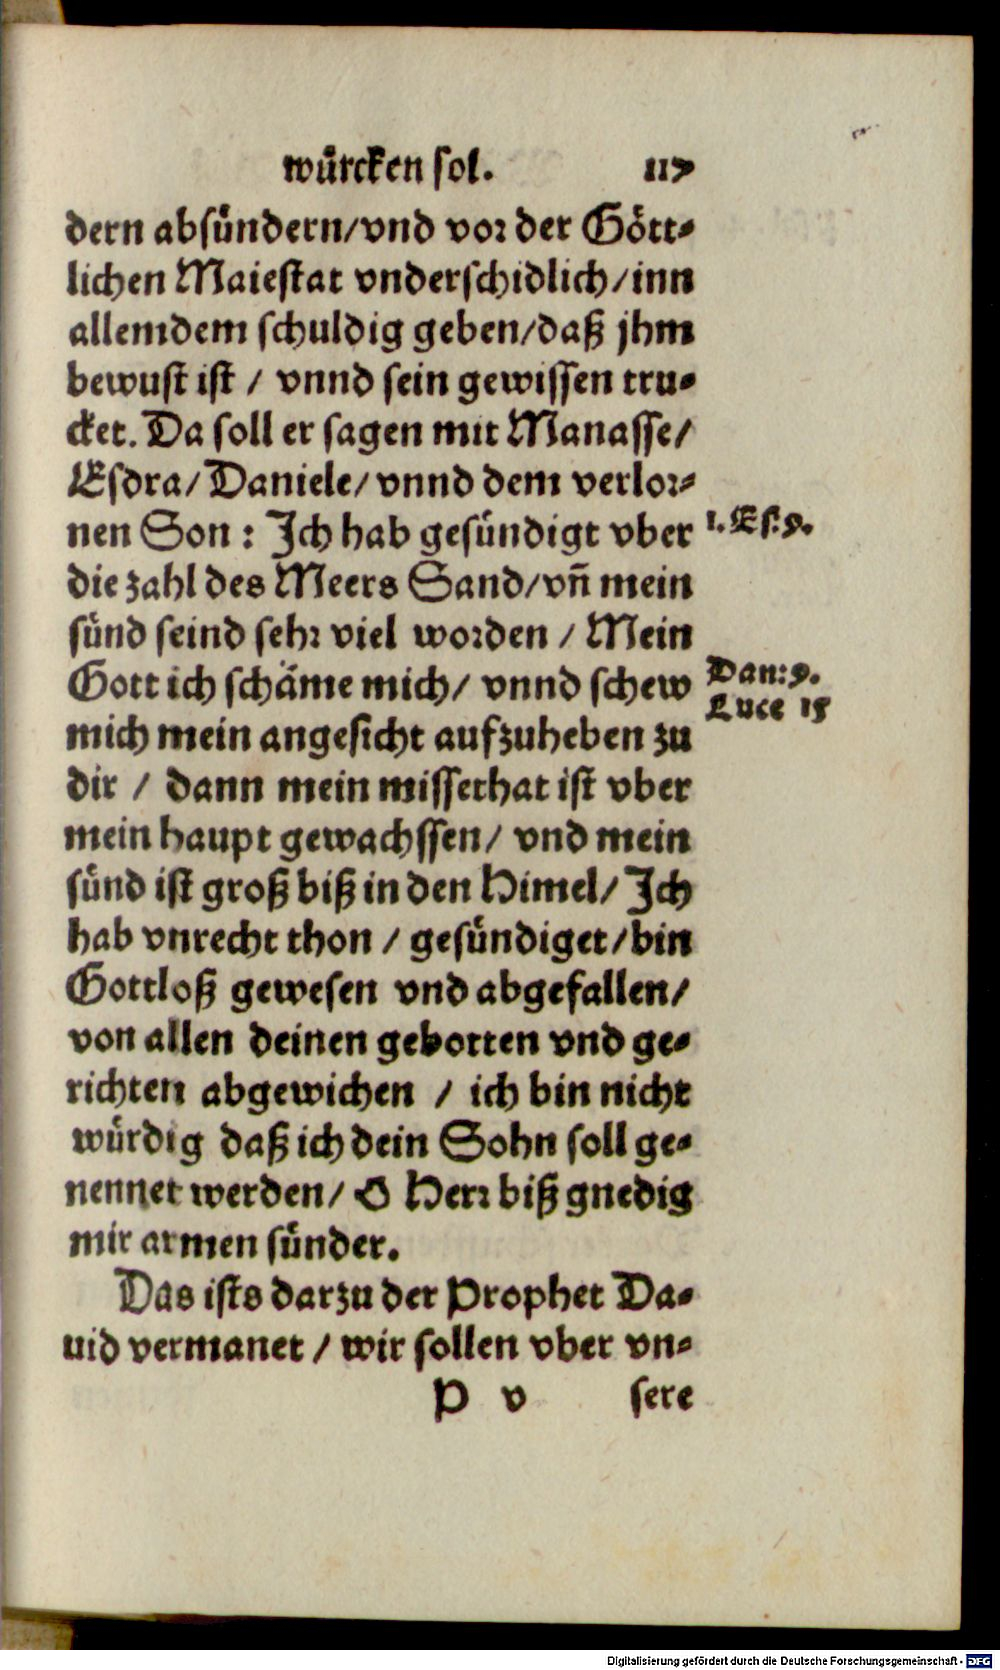 wuͤrcken sol. 117
dern absuͤndern/vnd vor der Goͤtt-
lichen Maiestat vnderschidlich/inn
allemdem schuldig geben/daß jhm
bewust ist / vnnd sein gewissen tru-
cket. Da soll er sagen mit Manasse/
Esdra/ Daniele/ vnnd dem verlor-
nen Son : Ich hab gesuͤndigt vber
1. Es: 9.
die zahl des Meers Sand/vn̄ mein
suͤnd seind sehr viel worden / Mein
Gott ich schaͤme mich/ vnnd schew
Dan: 9.
Luce 15
mich mein angesicht aufzuheben zu
dir / dann mein missethat ist vber
mein haupt gewachssen/ vnd mein
suͤnd ist groß biß in den Himel/ Ich
hab vnrecht thon / gesuͤndiget/bin
Gottloß gewesen vnd abgefallen/
von allen deinen gebotten vnd ge-
richten abgewichen / ich bin nicht
wuͤrdig daß ich dein Sohn soll ge-
nennet werden/ O Herr biß gnedig
mir armen suͤnder.
Das ists darzu der Prophet Da-
uid vermanet / wir sollen vber vn-
P v sere
Digitalisierung gefördert durch die Deutsche Forschungsgemeinschaft - DFG